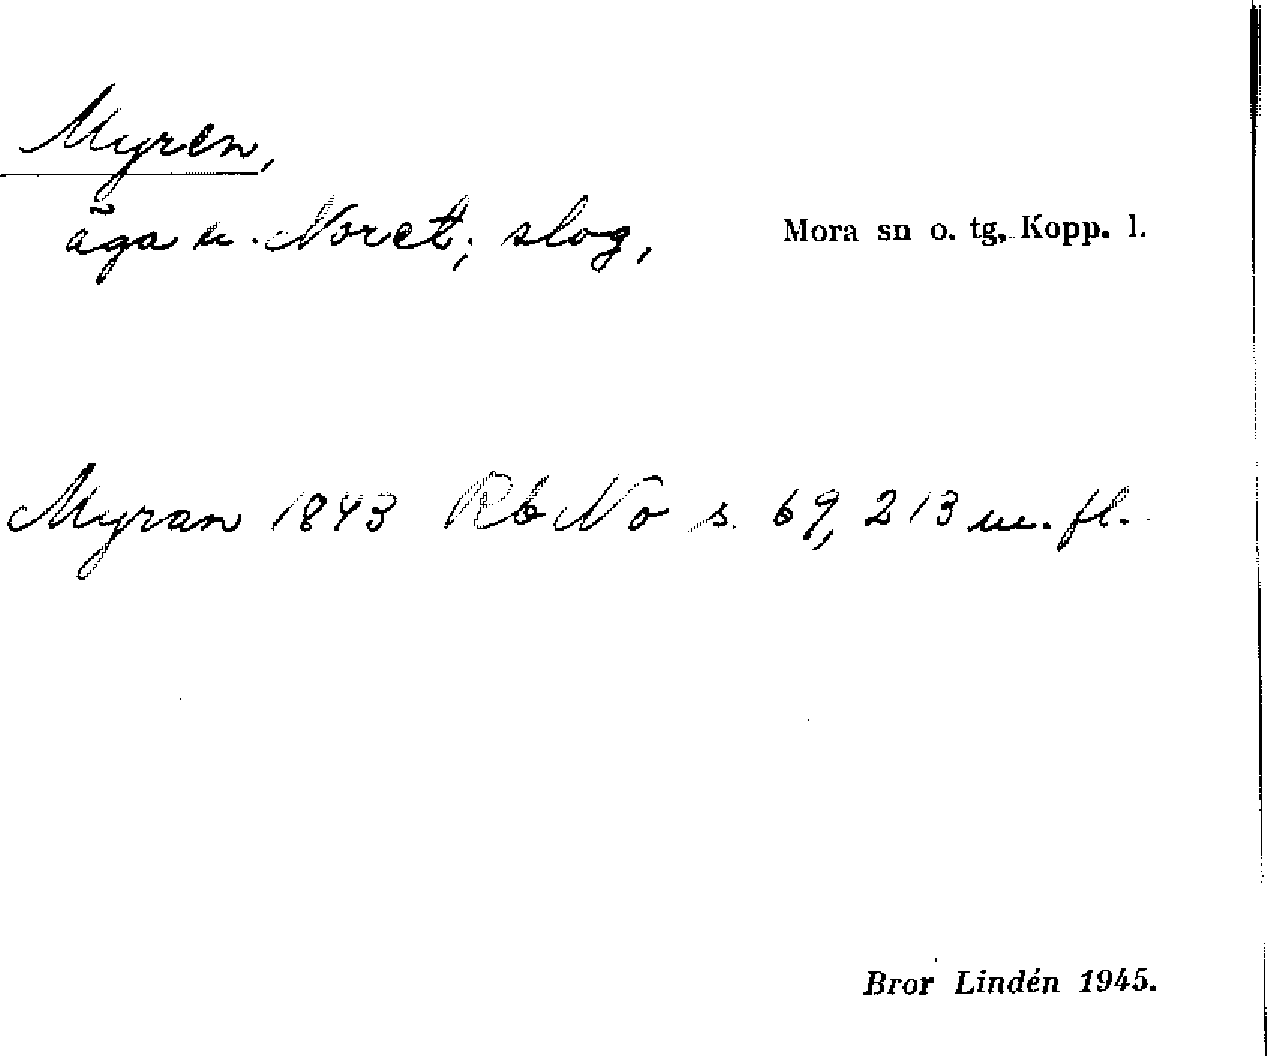 Myren,
äga u. Noret; slog, Mora sn o. tg, Kopp. l.
Myran 1843 Rb No s. 69, 213 m. fl.
Bror Lindén 1945.